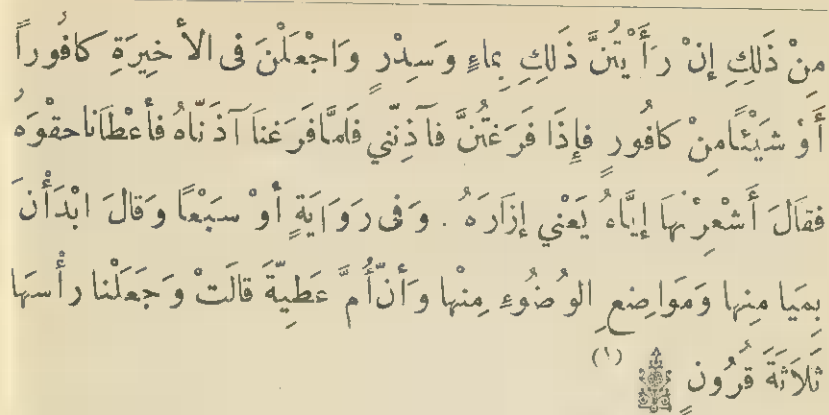 مِنْ ذَلِكِ إِنْ رَأَيْتُنَّ ذَلِكِ بِمَاءٍ وَسِدْرٍ وَاجْعَلْنَ فى الأَخِيرَةِ كَافُوراً
أَوْ شَيْئًا مِنْ كَافُورٍ فَإِذَا فَرَغْتُنَّ فَآذِنَّنِي فَلمَّا فَرَغْنَا آذَنَّاهُ فَأَعْطَانا حقْوَهُ
فقَالَ أَشْعِرْنَهَا إِيَّاهُ يَعْنِي إِزَارَهُ . وَفى رِوَايَةٍ أَوْ سَبْعًا وَقالَ ابْدَأْنَ
بِمَيَا مِنِها وَمَوَاضِعِ الوُضُوءِ مِنْها وَأَنَّ أُمَّ عَطِيَّةَ قالَتْ وَجَعَلْنا رأْسَهَا
ثَلاَثَةَ قُرُونٍ (١)